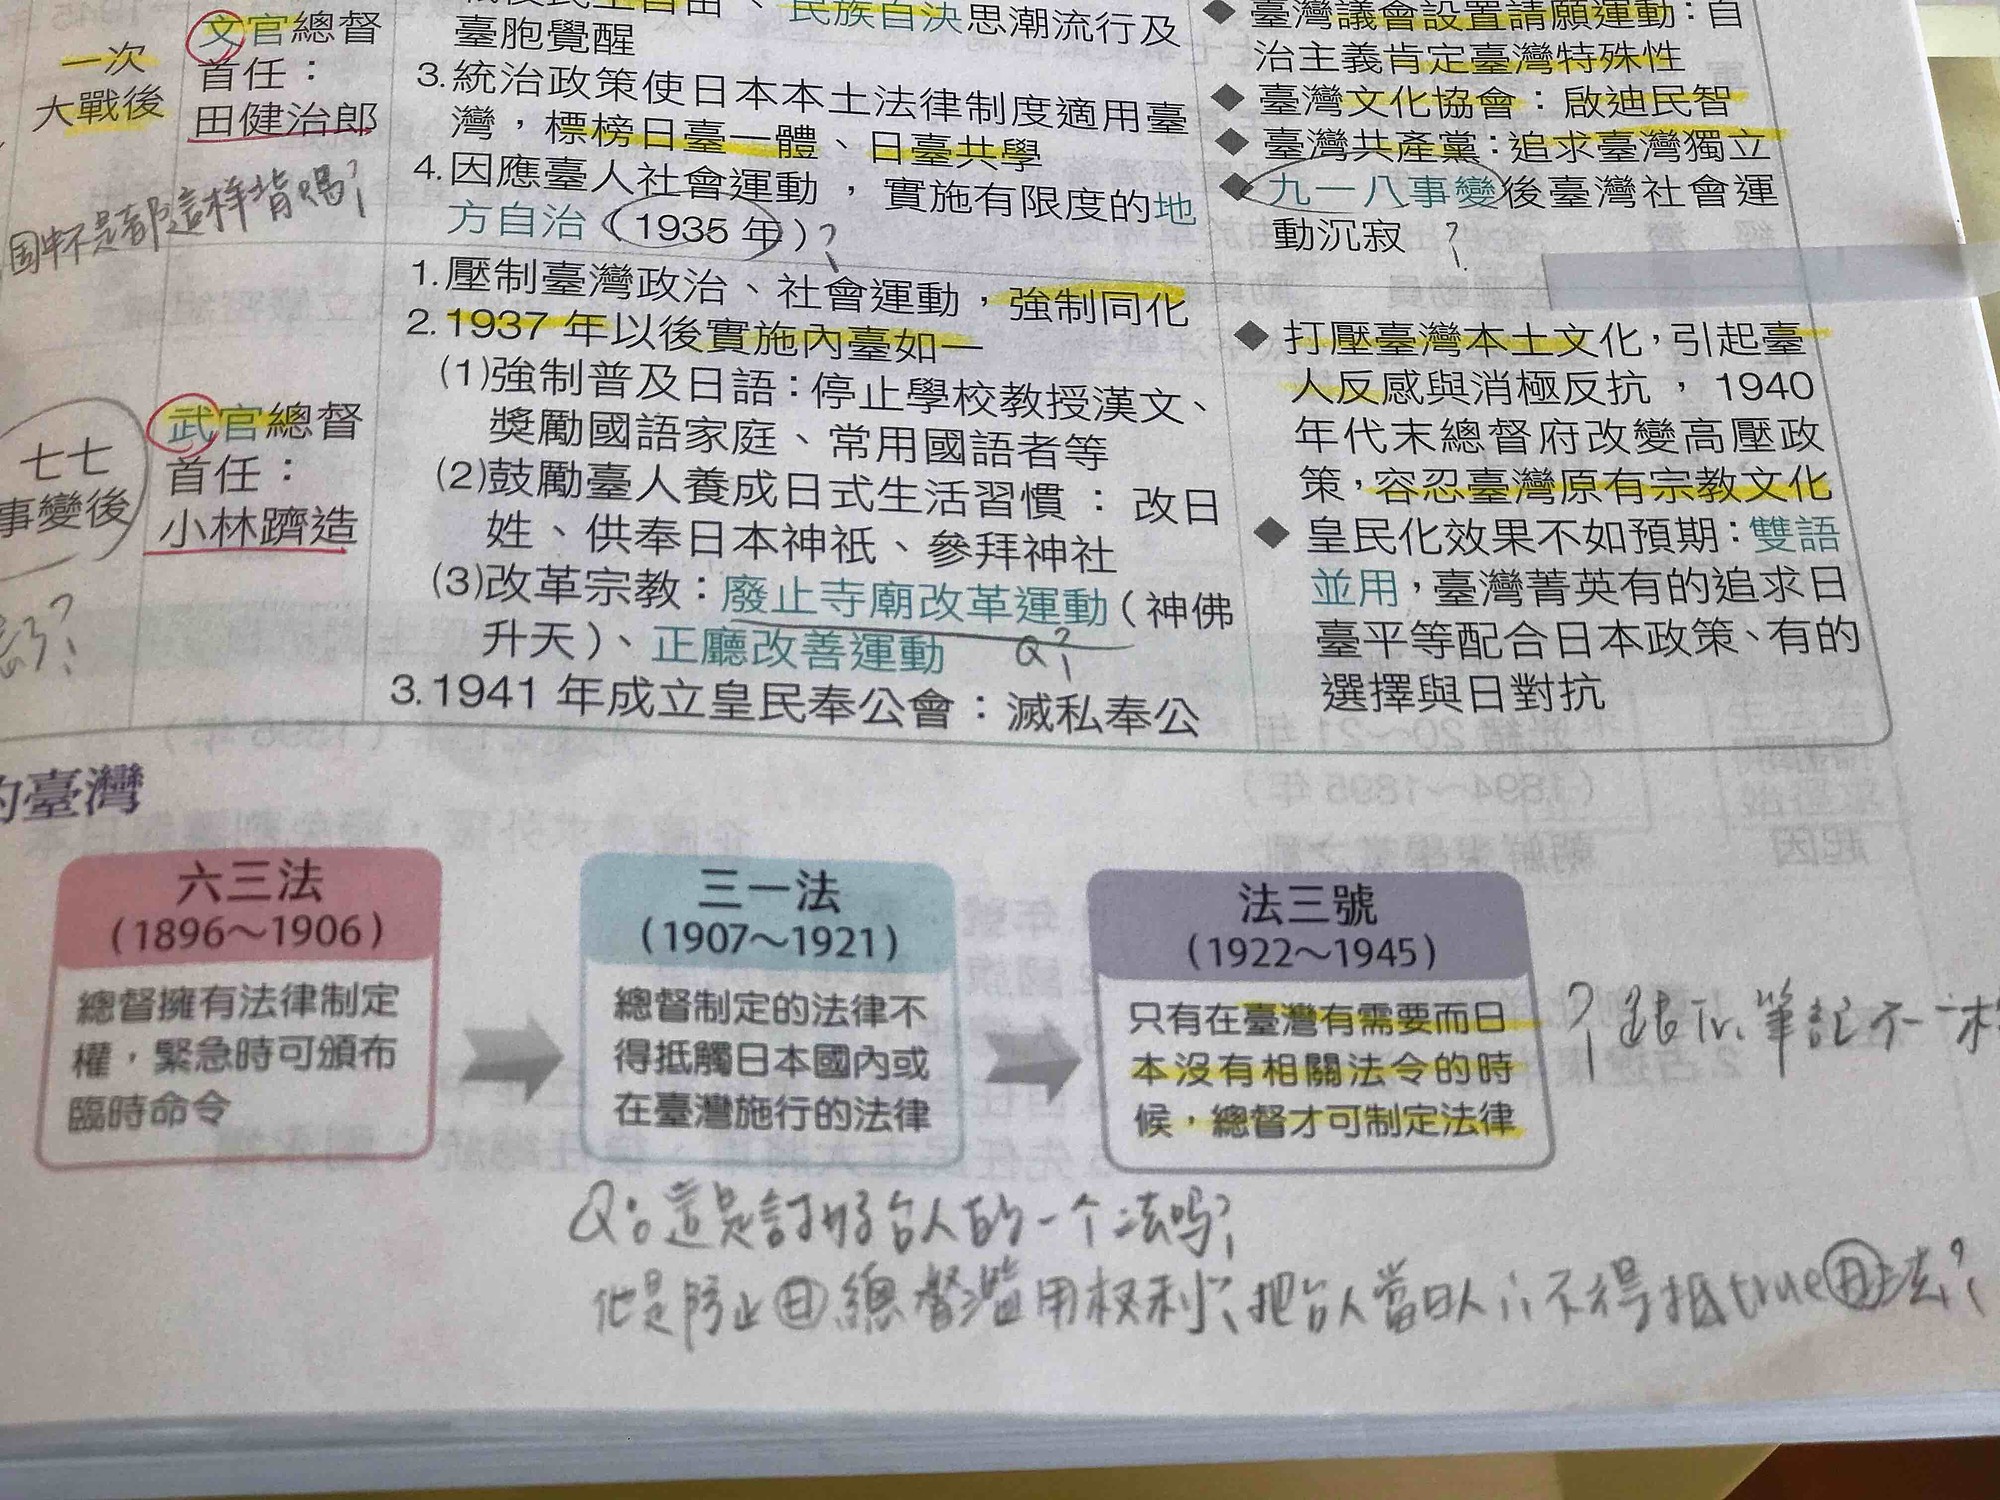 一次
大戰後
文官總督
首任：
田健治郎
國中不是都這樣背嗎？
戰後民主自由、民族自決思潮流行及
臺胞覺醒
3.統治政策使日本本土法律制度適用臺
灣，標榜日臺一體、日臺共學
4.因應臺人社會運動，實施有限度的地
方自治（1935 年）？
◆臺灣議會設置請願運動：自
治主義肯定臺灣特殊性
◆臺灣文化協會：啟迪民智
◆臺灣共產黨：追求臺灣獨立
◆九一八事變後臺灣社會運
動沉寂 ？
七七
事變後
武官總督
首任：
小林躋造
1.壓制臺灣政治、社會運動，強制同化
2.1937 年以後實施內臺如一
(1)強制普及日語：停止學校教授漢文、
獎勵國語家庭、常用國語者等
(2)鼓勵臺人養成日式生活習慣：改日
姓、供奉日本神祇、參拜神社
(3)改革宗教：廢止寺廟改革運動（神佛
升天）、正廳改善運動 Q？
3.1941 年成立皇民奉公會：滅私奉公
◆打壓臺灣本土文化，引起臺
人反感與消極反抗，1940
年代末總督府改變高壓政
策，容忍臺灣原有宗教文化
◆皇民化效果不如預期：雙語
並用，臺灣菁英有的追求日
臺平等配合日本政策、有的
選擇與日對抗
的臺灣
六三法
(1896～1906)
總督擁有法律制定
權，緊急時可頒布
臨時命令
三一法
(1907～1921)
總督制定的法律不
得抵觸日本國內或
在臺灣施行的法律
法三號
(1922～1945)
只有在臺灣有需要而日
本沒有相關法令的時
候，總督才可制定法律
？跟Tr.筆記不一樣
Q：這是討好台人的一个法吗？
他是防止日總督濫用权利、把台人當日人;不得抵true日法？